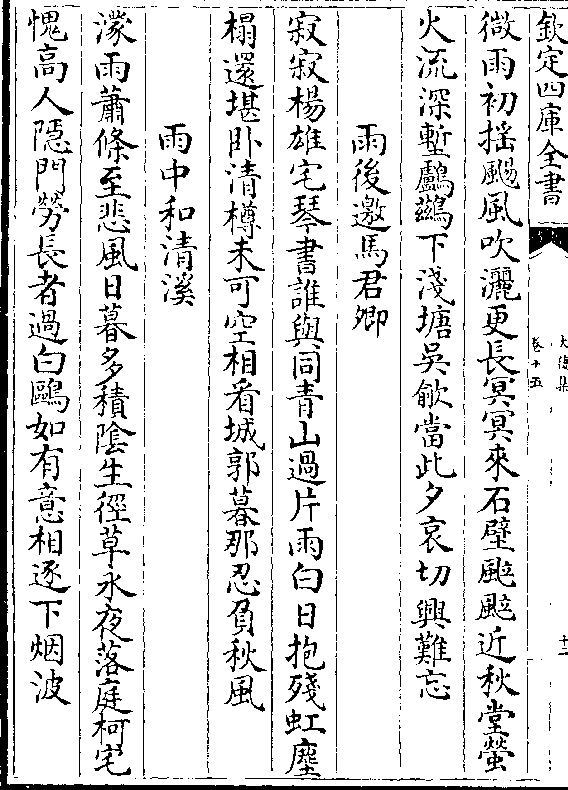 欽定四庫全書
卷十五
十三
微雨初揺颺風吹灑更長冥冥來石壁颸颸近秋堂螢
火流深塹鸕鷀下淺塘吳歈當此夕哀切興難忘
雨後邀馬君卿
寂寂楊雄宅琴書誰與同青山過片雨白日抱殘虹塵
榻還堪卧清樽未可空相看城郭暮那忍負秋風
雨中和清溪
濛雨蕭條至悲風日暮多積陰生徑草永夜落庭柯宅
愧高人隱門勞長者過白鷗如有意相逐下烟波